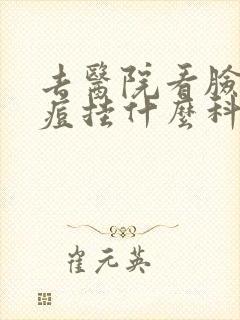 去醫院看臉
痘挂什麼科
崔元英